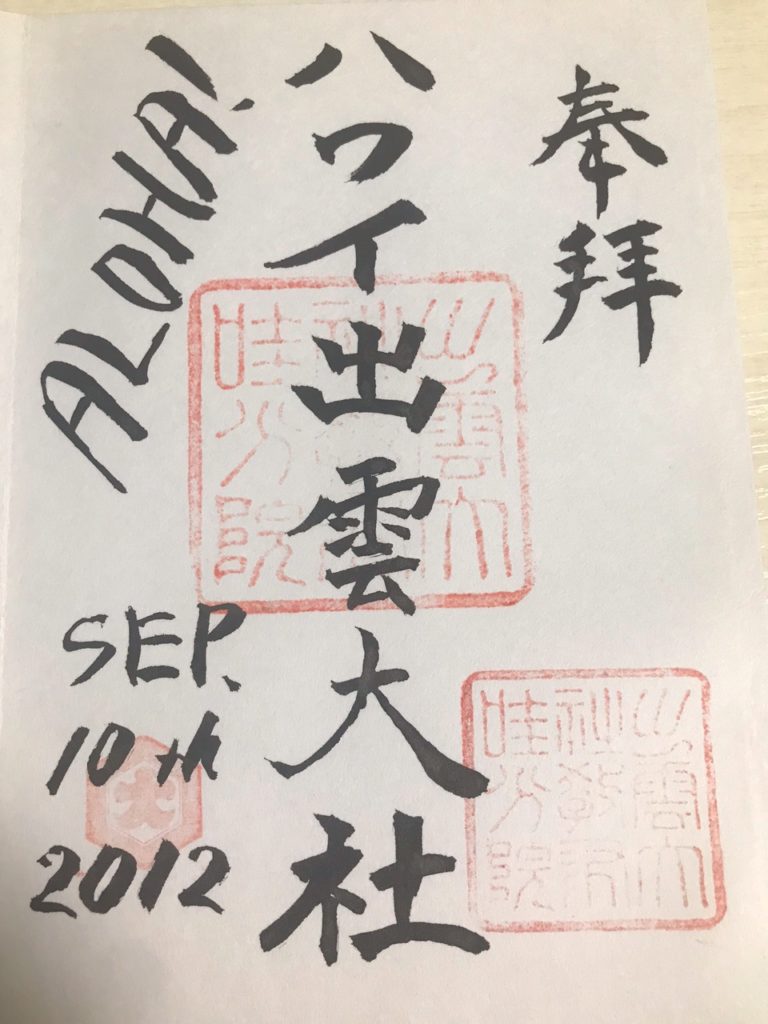 奉拝
ハワイ出雲大社
ALOHA!
SEP.
10th
2012
出雲大
哇分院
出雲大
社教
哇分院